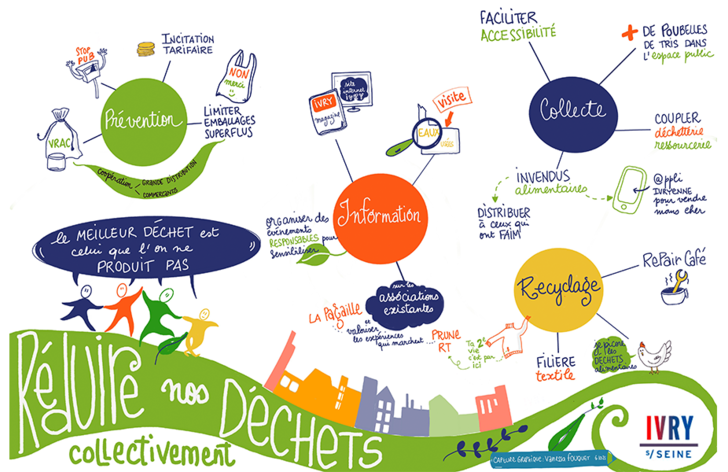 STOP
PUB
INCITATION
TARIFAIRE
NON
merci
Prévention
LIMITER
EMBALLAGES
SUPERFLUS
VRAC
Coopération
GRANDE DISTRIBUTION
COMMERÇANTS
le MEILLEUR DÉCHET est
celui que l'on ne
PRODUIT PAS
IVRY
magazine
site
internet
ivry
visite
EAUX
Information
organiser des
événements
RESPONSABLES pour
sensibiliser
sur les
associations
existantes
LA PAGAILLE
valoriser
les expériences
qui marchent
PRUNE
RT
FACILITER
ACCESSIBILITÉ
+ DE POUBELLES
DE TRIS DANS
L'espace public
Collecte
COUPLER
déchetterie
ressourcerie
INVENDUS
alimentaires
DISTRIBUER
à CEUX qui
ont FAIM
@ppli
IVRYENNE
pour vendre
moins cher
Recyclage
RePaiR Café
Ta 2e
vie
c'est par
ici
FILIÈRE
textile
je picore
les
DÉCHETS
alimentaires
Réduire nos DÉCHETS
collectivement
CAPTURE GRAPHIQUE : Vanessa Fouquet
IVRY
s/SEINE